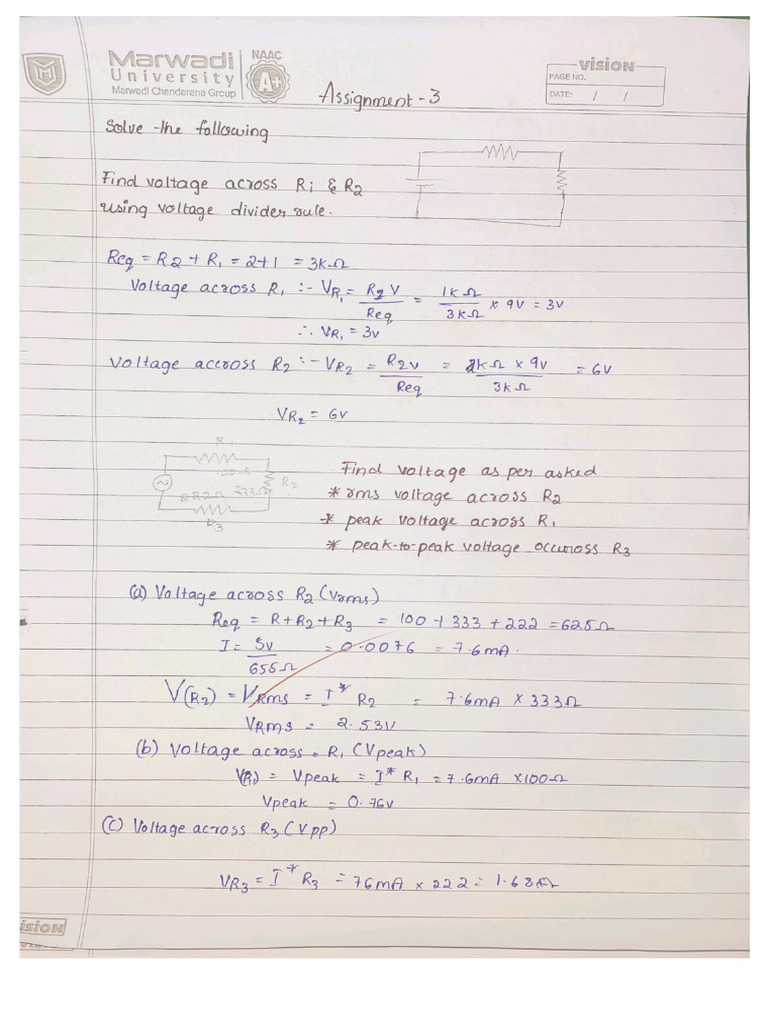 Marwadi
University
Marwadi Chandarana Group
NAAC
A+
Assignment-3
VISION
PAGE NO.
DATE: / /
Solve the following
Find voltage across R1 & R2
using voltage divider rule.
Req = R2 + R1 = 2+1 = 3kΩ
Voltage across R1 :- VR1 = R2 V / Req = 1kΩ / 3kΩ × 9V = 3V
∴ VR1 = 3V
Voltage accross R2 :- VR2 = R2V / Req = 2kΩ × 9V / 3kΩ = 6V
VR2 = 6V
R1
R2
222Ω 333Ω
R3
Find voltage as per asked
* rms voltage across R2
* peak voltage across R1
* peak-to-peak voltage occuross R3
(a) Voltage across R2 (Vrms)
Req = R+R2+R3 = 100+333+222 = 625Ω
I = 5V / 655Ω = 0.0076 = 7.6mA.
V(R2) = VRms = I* R2 = 7.6mA × 333Ω
VRMS = 2.53V
(b) Voltage across R1 (Vpeak)
V(R1) = Vpeak = I* R1 = 7.6mA ×100Ω
Vpeak = 0.76V
(C) Voltage across R3 (Vpp)
VR3 = I* R3 = 76mA × 222 = 1.68Ω
ision